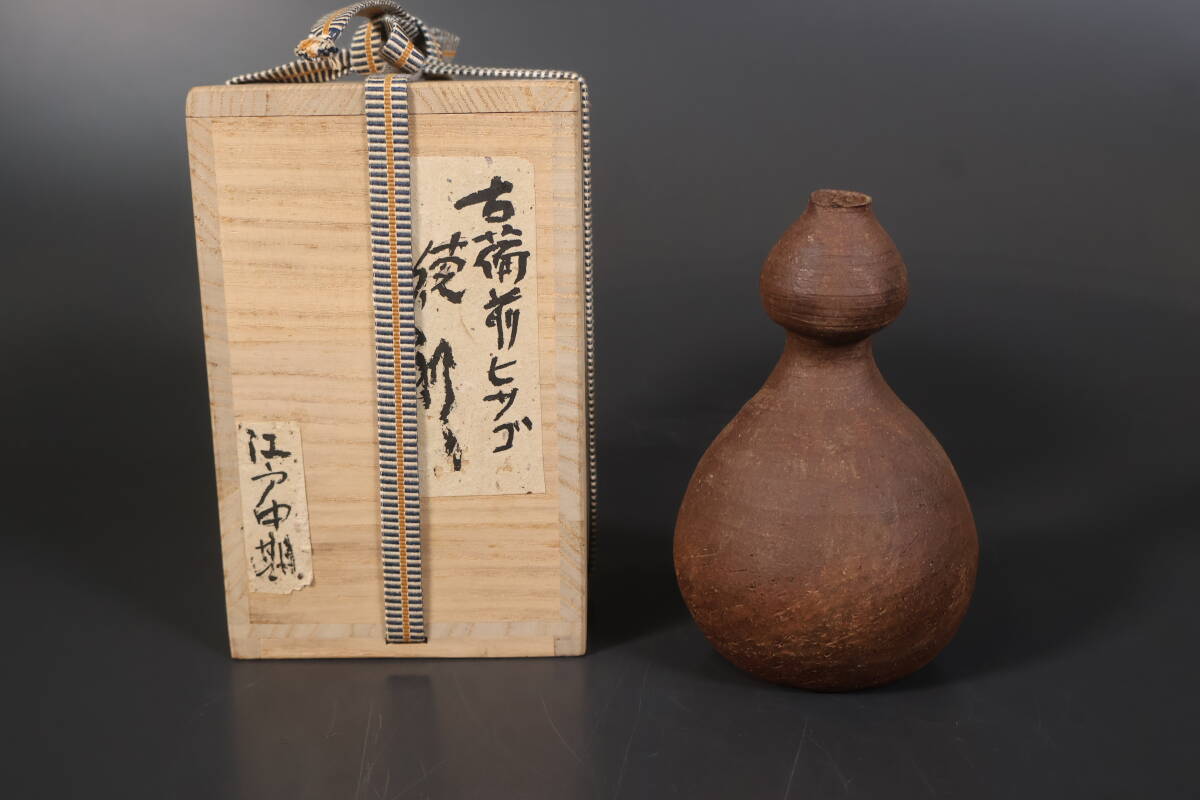 古備前ヒサゴ
徳利
江戸中期